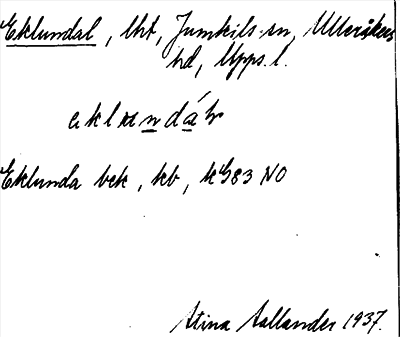 Eklundal, lht, Jumkils sn, Ulleråkers
hd, Upps. l.
eklundál
Eklunda bek, kb, kG83 NO
Stina Sallander 1937.